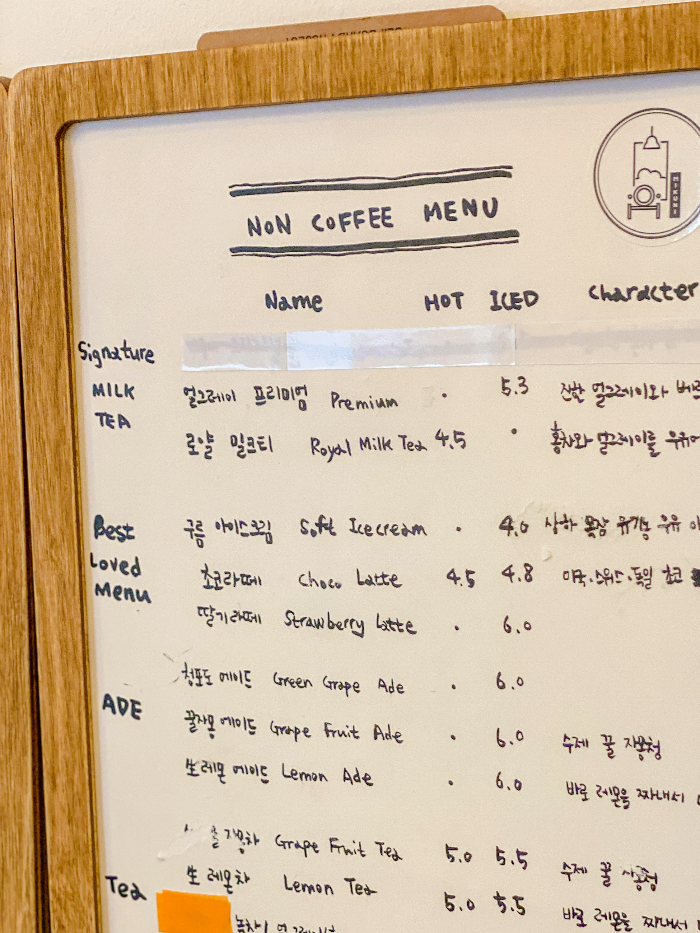 NON COFFEE MENU
MIKUNI
Name HOT ICED Character
Signature
MILK TEA
얼그레이 프리미엄 Premium · 5.3 진한 얼그레이와
로얄 밀크티 Royal Milk Tea 4.5 · 홍차와 얼그레이를 우유에
Best Loved Menu
구름 아이스크림 Soft Icecream · 4.0 상하 목장 유기농 우유
쵸코라떼 Choco Latte 4.5 4.8 미국.스위스.독일 쵸코
딸기라떼 Strawberry Latte · 6.0
ADE
청포도 에이드 Green Grape Ade · 6.0
꿀자몽 에이드 Grape Fruit Ade · 6.0 수제 꿀 자몽청
生레몬 에이드 Lemon Ade · 6.0 바로 레몬을 짜내서
Tea
꿀 자몽차 Grape Fruit Tea 5.0 5.5 수제 꿀 자몽청
生 레몬차 Lemon Tea 5.0 5.5 바로 레몬을 짜내서